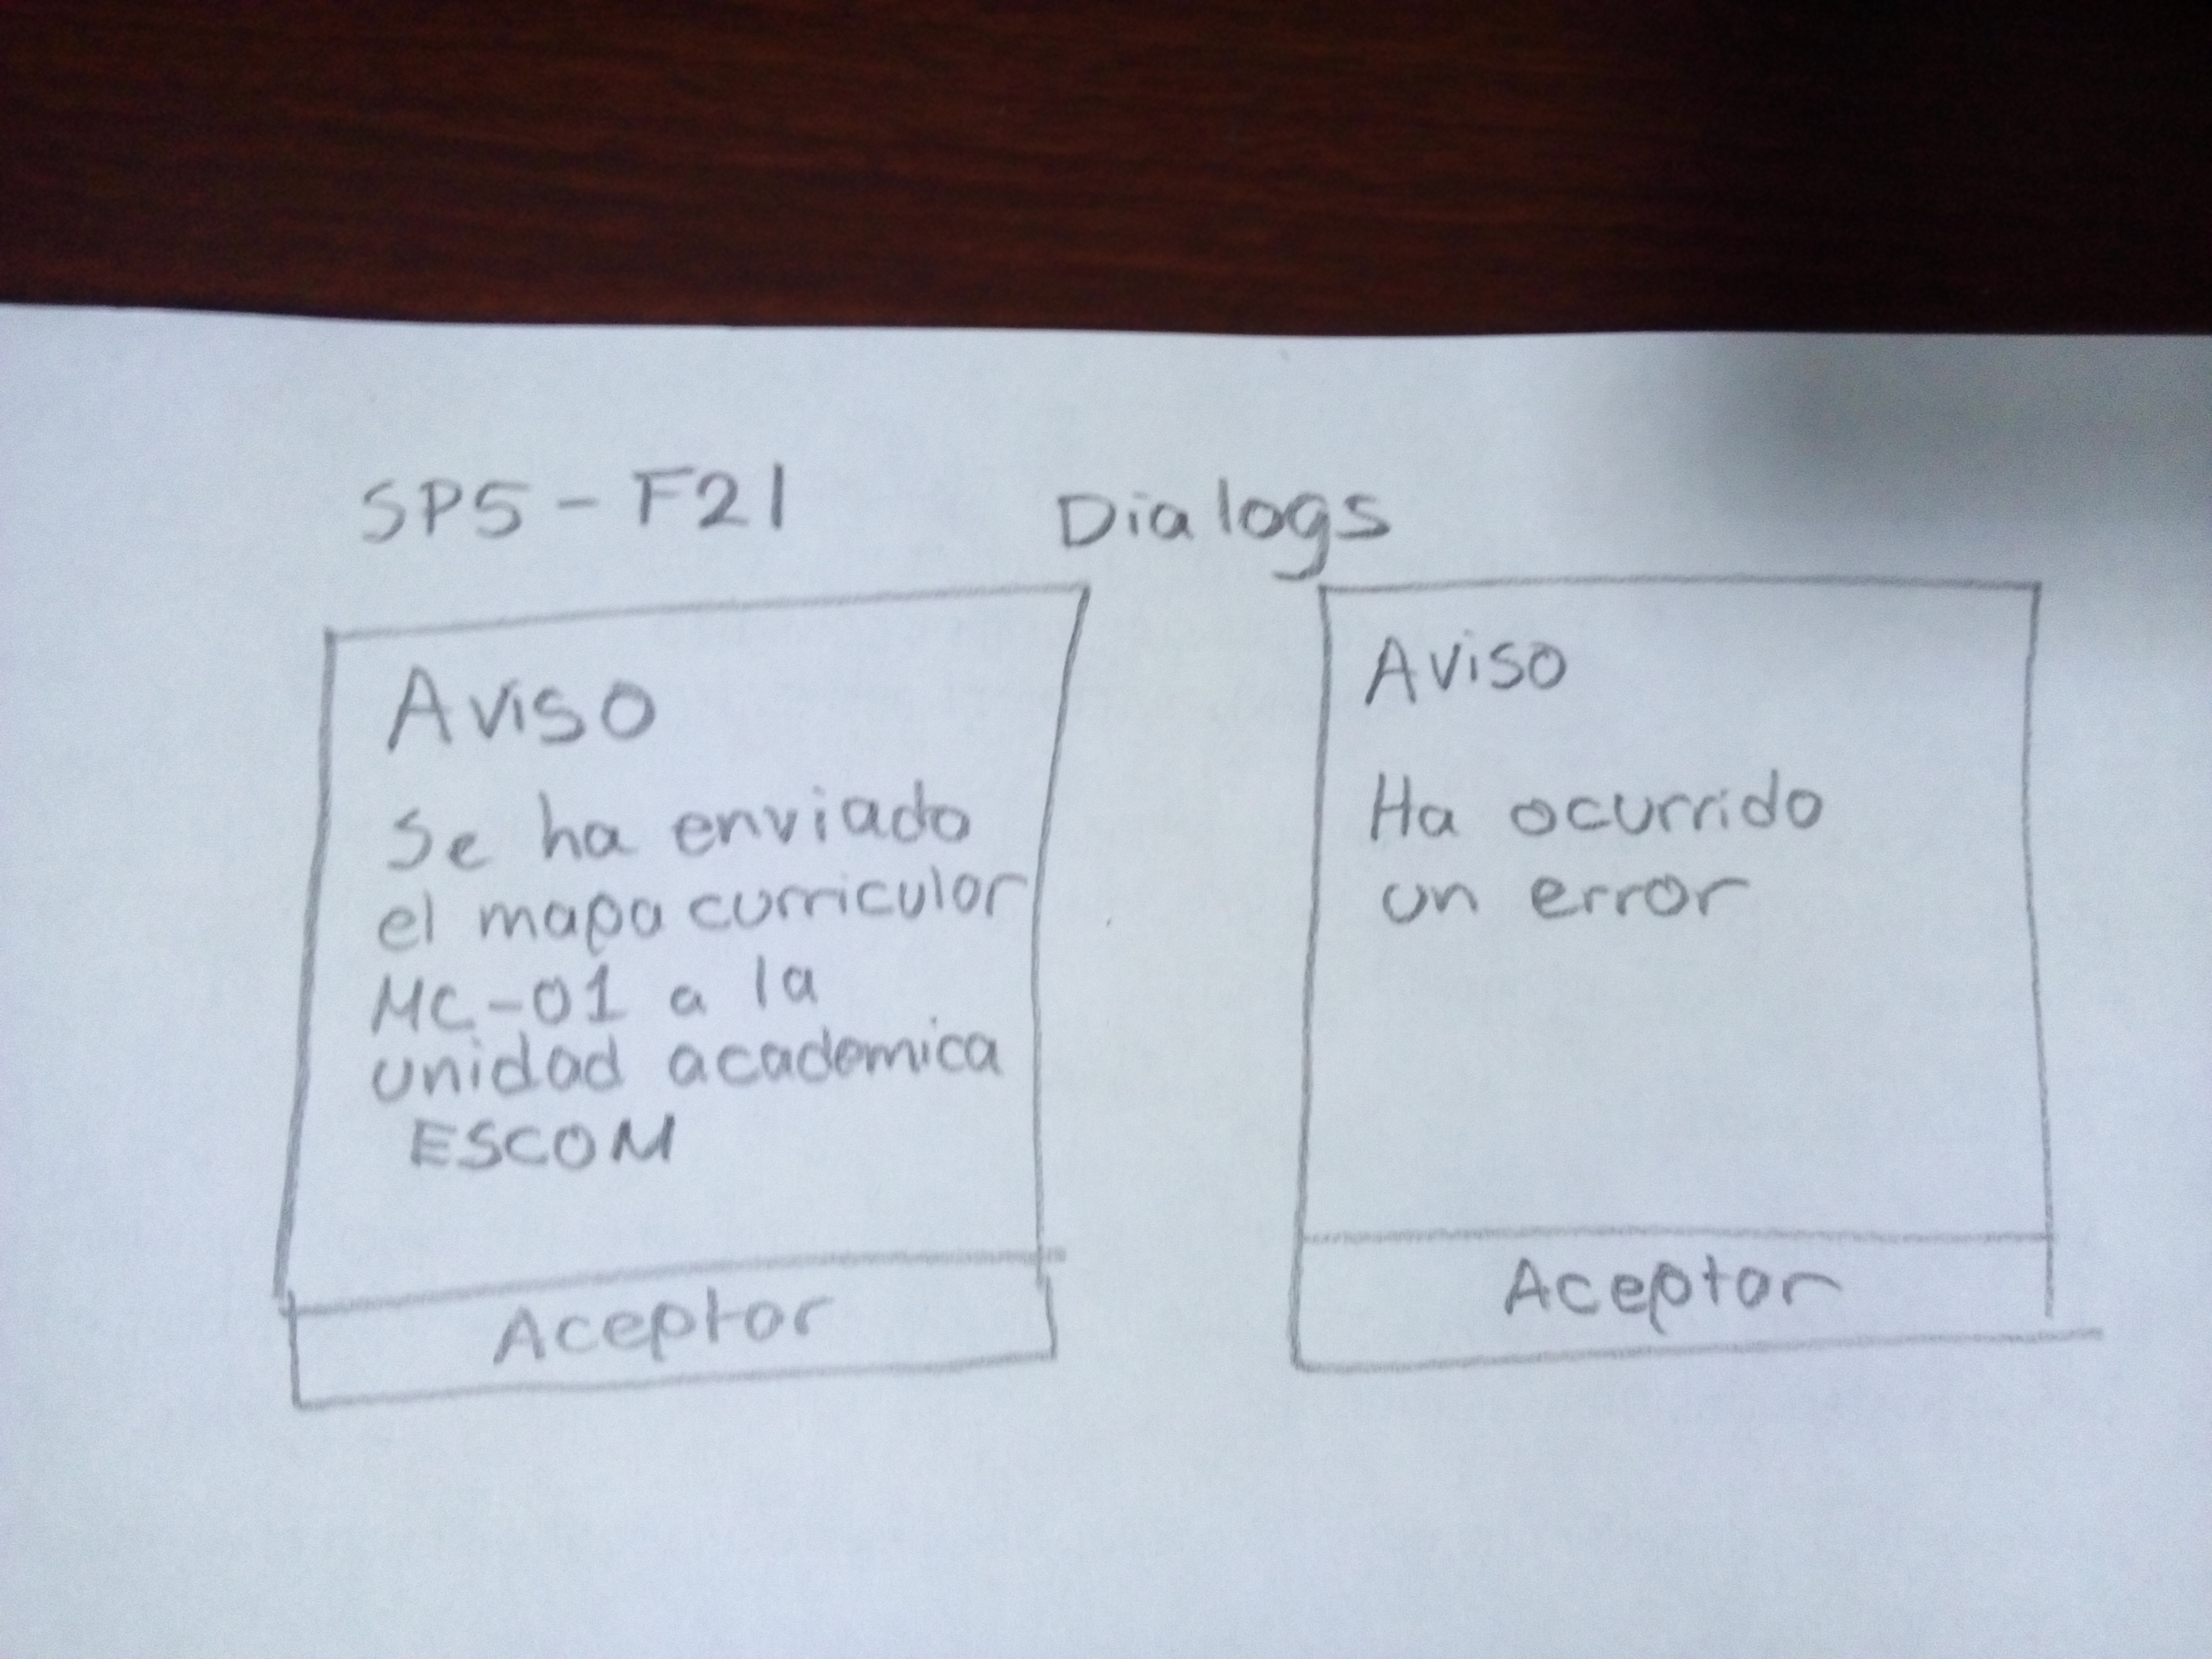 SP5 - F21 Dialogs
Aviso
Se ha enviado
el mapa curricular
MC-01 a la
unidad academica
ESCOM
Aceptar
Aviso
Ha ocurrido
un error
Aceptar